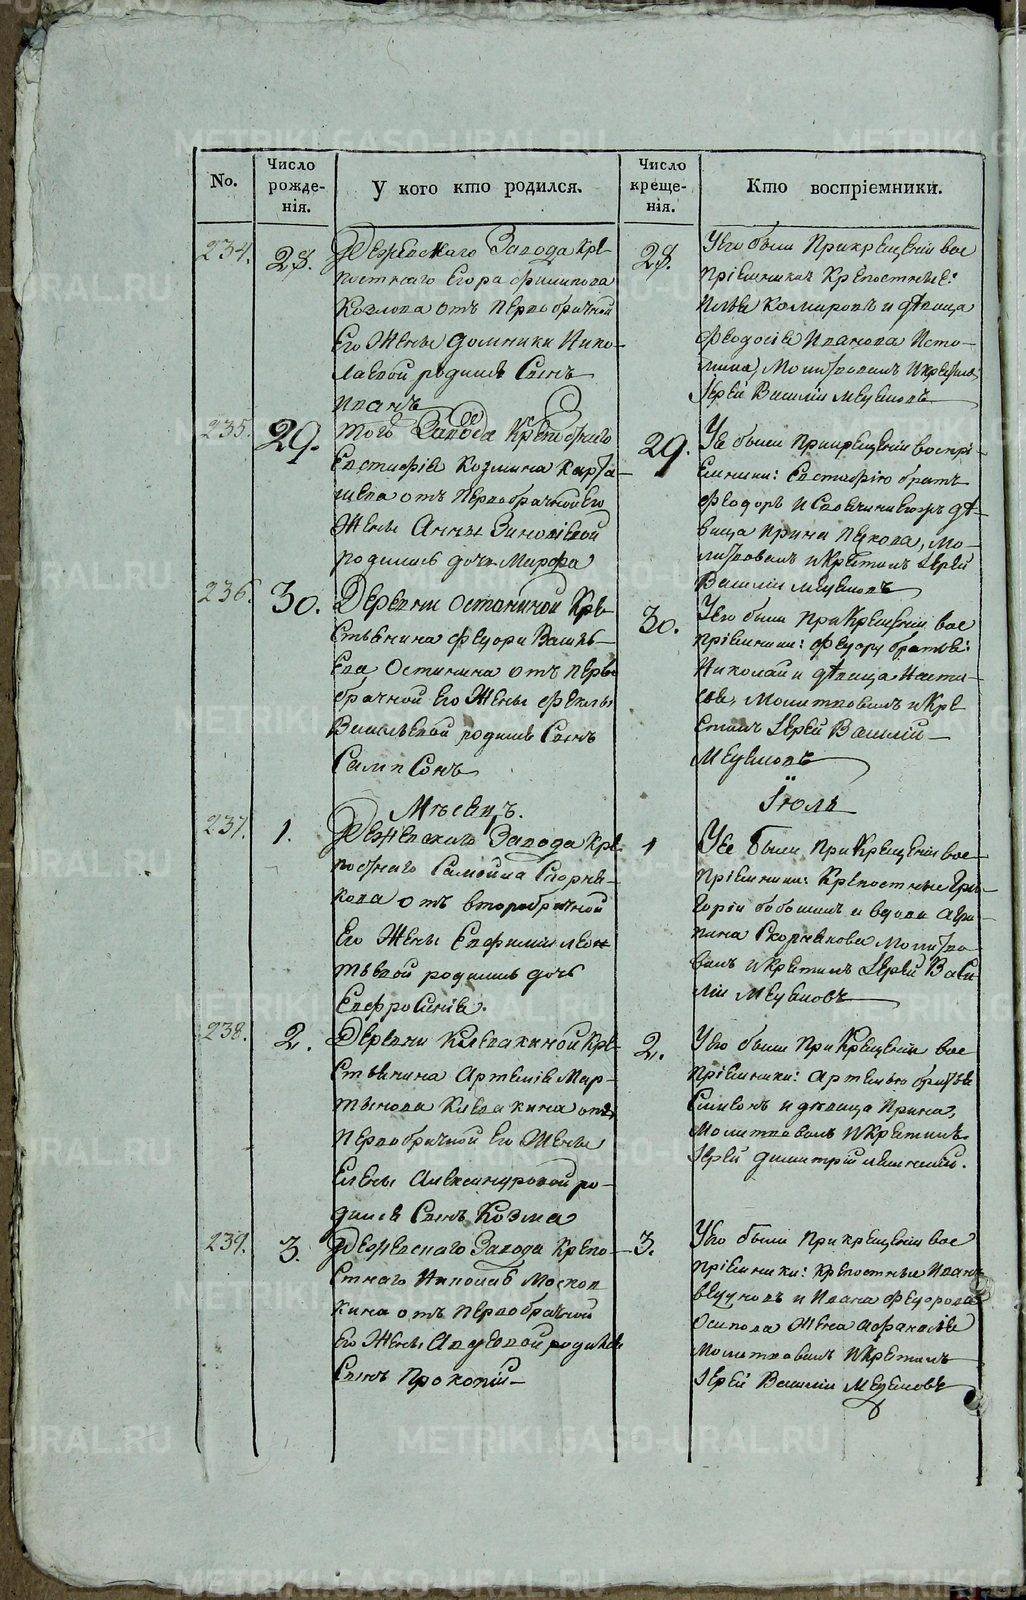 No.
Число рожде-
нія.
У кого кто родился.
Число креще-
нія.
Кто воспріемники.
234.
28.
Режевскаго Завода Кре-
постнаго Егора Филипова
Козлова отъ первобрачной
Его Жены Домники Нико-
лаевой родился Сынъ
Иванъ
28.
У его были При крещеніи вос
пріемники Крепостные:
и дѣвица
Феодосія Иванова Исто-
мина, Молитвовалъ И крестилъ
Іерей Василій Медемовъ
235.
29.
того Завода Крепостнаго
Евстафія Козмина Карта-
шева отъ первобрачной Его
Жены Анны Зиновіевой
родилась дочь Марфа
29.
Уе были При крещеніи воспрі-
емники: Евстафію братъ
Феодоръ и дѣ-
вица Ирина Пѣхова, Мо-
литвовалъ и Крестилъ Іерей
Василій Медемовъ
236.
30.
Деревни Останиной Кре-
стьянина Федора Василь-
ева Останина отъ перво
брачной Его Жены Феклы
Васильевой родился Сынъ
Сампсонъ
30.
У его были При Крещеніи вос
пріемники: Федору братья:
Николай и дѣвица Наста-
сья, Молитвовалъ и Кре
стилъ Іерей Василій
Медемовъ
Мѣсецъ.
Іюль
237.
1.
Режевскаго Завода Кре-
постнаго Самойла Скорня-
кова отъ второбрачной
Его Жены Евфиміи Леон-
тьевой родилась дочь
Евфросинія.
1
У ее были При Крещеніи вос-
пріемники: Крепостные Гри-
горій Бобошинъ и вдова Агри-
пина Скорнякова Молитво-
валъ и Крестилъ Іерей Васи
лій Медемовъ
238.
2.
Деревни Клевакиной Кре-
стьянина Артемія Мар-
тынова Клевакина отъ
первобрачной Его Жены
Елены Александровой ро-
дился Сынъ Козма
2.
У его были При Крещеніи вос
пріемники: Артемью братья
Симеонъ и дѣвица Ирина,
Молитвовалъ И Крестилъ
Іерей Димитрій
239.
3.
Режевскаго Завода Крепо-
стнаго Николая Москов
кина отъ первобрачной
Его Жены Авдеевой родился
Сынъ Прокопій
3.
У его были При крещеніи вос
пріемники: Крепостные Иванъ
и Ивана Федорова
Осипова Жена Афанасія
Молитвовалъ И Крестилъ
Іерей Василій Медемовъ
METRIKI.GASO-URAL.RU